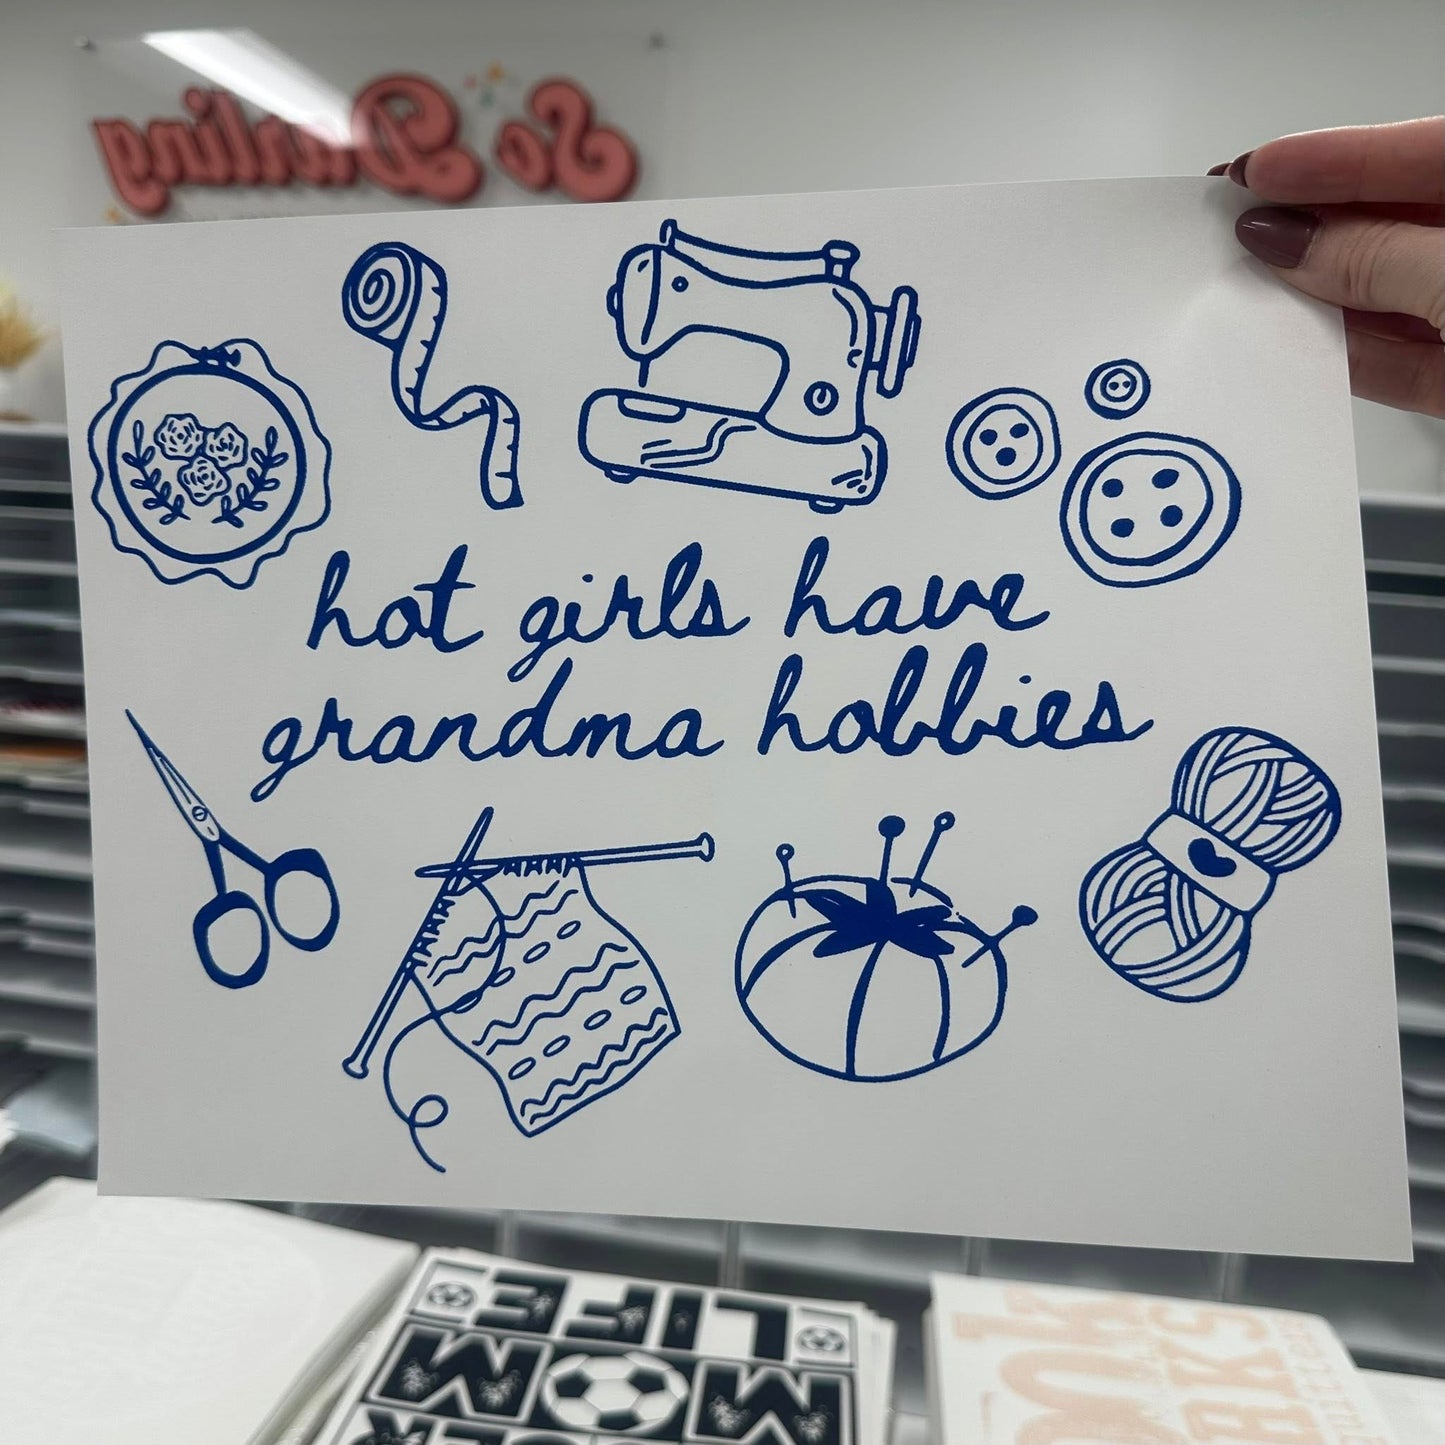 So Darling
hot girls have
grandma hobbies
LIFE
MOM